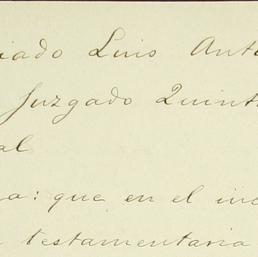 iado Luis Anto
Juzgado Quint
al
a: que en el inc
testamentaria